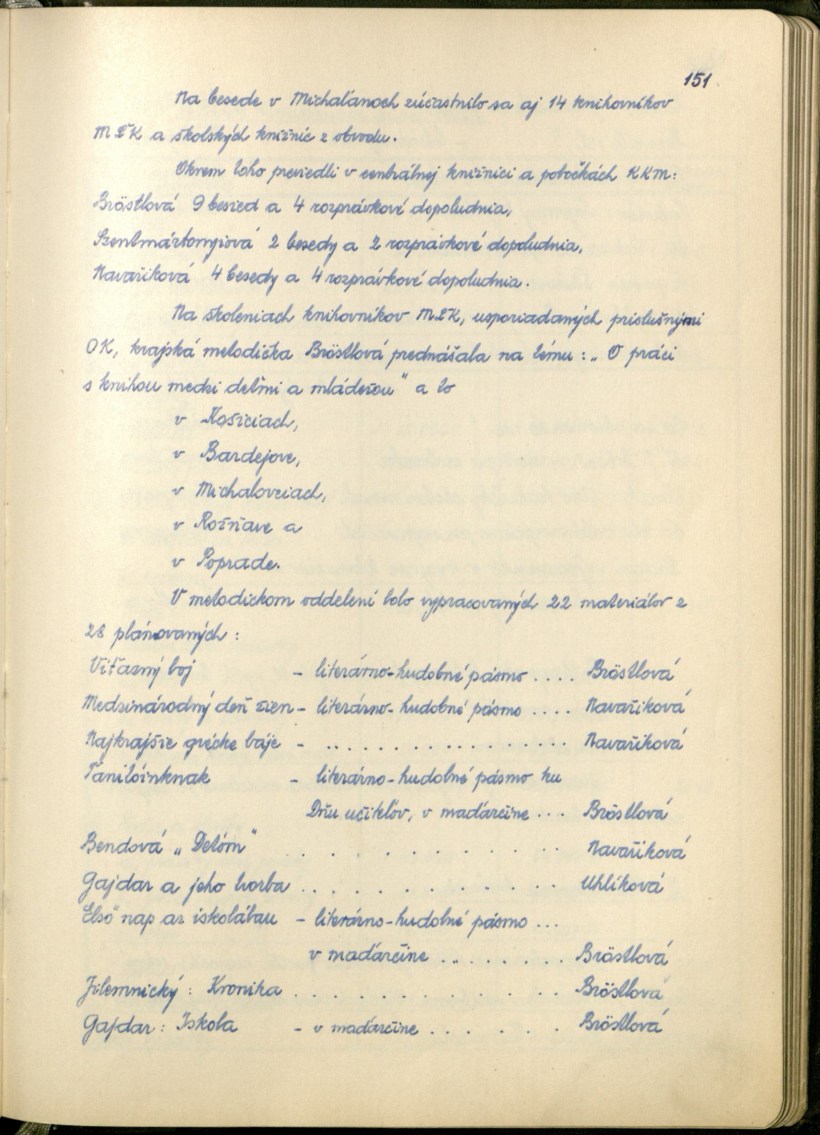 151
Na besede v Michaľanoch zúčastnilo sa aj 14 knihovníkov
MĽK a školských knižníc z obvodu.
Okrem toho previedli v centrálnej knižnici a pobočkách KKM:
Bröstlová 9 besied a 4 rozprávkové dopoludnia,
Szentmártonyiová 2 besedy a 2 rozprávkové dopoludnia,
Navaříková 4 besedy a 4 rozprávkové dopoludnia.
Na školeniach knihovníkov MĽK, usporiadaných príslušnými
OK, krajská metodička Bröstlová prednášala na tému: „O práci
s knihou medzi deťmi a mládežou" a to
v Košiciach,
v Bardejove,
v Michalovciach,
v Rožňave a
v Poprade.
V metodickom oddelení bolo vypracovaných 22 materiálov z
28 plánovaných :
Víťazný boj – literárno-hudobné pásmo .... Bröstlová
Medzinárodný deň žien – literárno-hudobné pásmo .... Navaříková
Najkrajšie grécke báje – .. . . . . . . . . . . . . . . Navaříková
Tanítóinknak – literárno-hudobné pásmo ku
Dňu učiteľov, v maďarčine ... Bröstlová
Bendová „Deťom" . . . . . . . . . . . . Navaříková
Gajdar a jeho tvorba . . . . . . . . . . . . Uhlíková
Első nap az iskolábau – literárno-hudobné pásmo ...
v maďarčine . . . . . . . Bröstlová
Jilemnický : Kronika . . . . . . . . . . . . Bröstlová
Gajdar : Iskola – v maďarčine . . . . . . Bröstlová